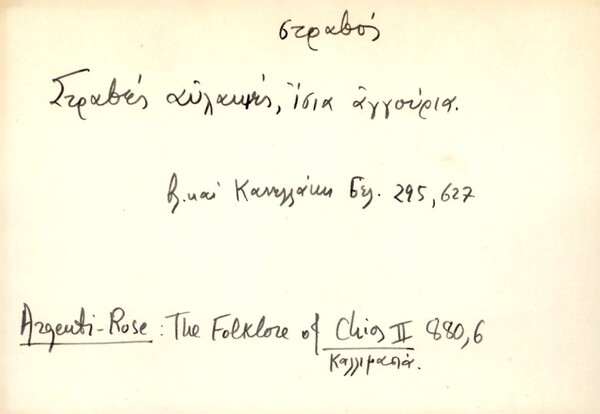 στραβός
Στραβές αὐλακιές, ἴσια ἀγγούρια.
β. καί Κανελλάκη σελ. 295, 627
Argenti-Rose: The Folklore of Chios II 880,6
Καλλιμασιά.